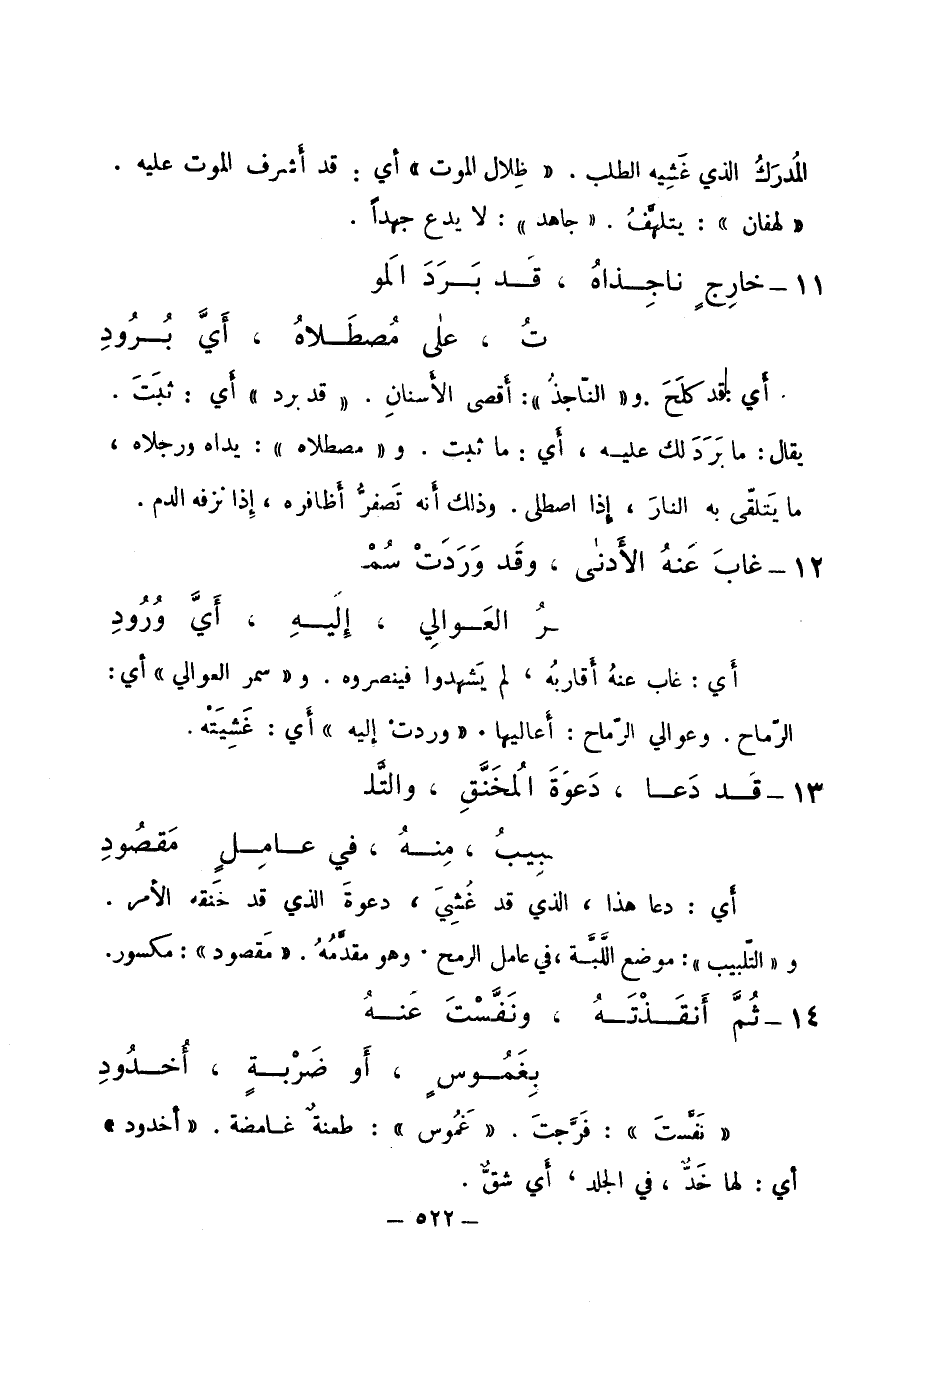 المُدرَكُ الذي غَشِيه الطلب . « ظِلال الموت » أي : قد أَشرف الموت عليه .
« لهفان » : يتلهَّفُ . « جاهد » : لا يدع جهداً .
١١ – خارِجٍ ناجِذاهُ ، قَد بَرَدَ المَو
تُ ، علٰى مُصطَلاهُ ، أَيَّ بُرُودِ
أَي : قد كلَحَ . و « النّاجذُ » : أَقصى الأَسنانِ . « قد برد » أَي : ثبَتَ .
يقال : ما بَرَدَ لك عليه ، أَي : ما ثبت . و « مصطلاه » : يداه ورجلاه ،
ما يَتلقّى به النارَ ، إِذا اصطلى . وذلك أَنه تَصفرُّ أَظافره ، إِذا نزفه الدم .
١٢ – غابَ عَنهُ الأَدنٰى ، وقَد وَرَدَتْ سُمْـ
ـرُ العَوالِي ، إِلَيهِ ، أَيَّ وُرُودِ
أَي : غاب عنهُ أَقاربُه ، لم يَشهدوا فينصروه . و « سمر العوالي » أَي :
الرّماح . وعوالي الرّماح : أَعاليها . « وردتْ إليه » أَي : غَشِيَتْه .
١٣ – قَد دَعا ، دَعوَةَ المُخَنَّقِ ، والتَّلـ
ـبِيبُ ، مِنهُ ، في عامِلٍ مَقصُودِ
أَي : دعا هذا ، الذي قد غُشِيَ ، دعوةَ الذي قد خَنقه الأمر .
و « التّلبيب » : موضع اللَّبَّة ، في عامل الرمح . وهو مقدَّمُهُ . « مَقصود » : مكسور .
١٤ – ثُمَّ أَنقَذْتَهُ ، ونَفَّسْتَ عَنهُ
بِغَمُوسٍ ، أَو ضَرْبةٍ ، أُخدُودِ
« نَفَّستَ » : فَرَّجتَ . « غَمُوس » : طعنةٌ غامضة . « أخدود »
أي : لها خَدٌّ ، في الجلد ، أَي شقٌّ .
– ٥٢٢ –